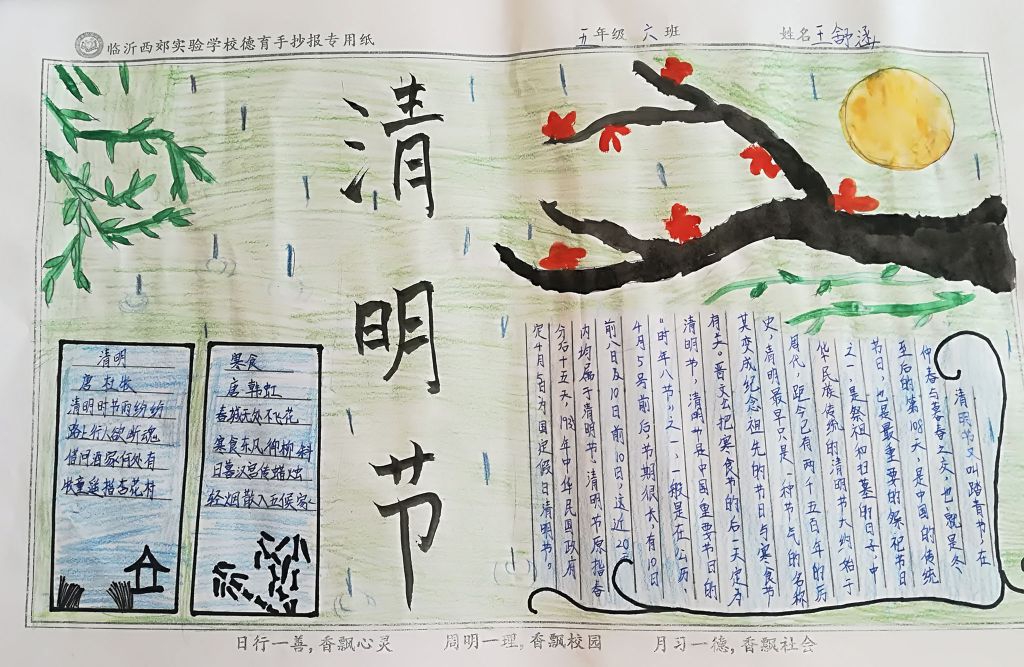 临沂西郊实验学校德育手抄报专用纸 五年级 六班 姓名王舒涵
清明节
清明
唐 杜牧
清明时节雨纷纷
路上行人欲断魂
借问酒家何处有
牧童遥指杏花村
寒食
唐 韩虹
春城无处不飞花
寒食东风御柳斜
日暮汉宫传蜡烛
轻烟散入五侯家
清明节又叫踏青节，在
仲春与暮春之交，也就是冬
至后的第108天，是中国的传统
节日，也是最重要的祭祀节日
之一，是祭祖和扫墓的日子，中
华民族传统的清明节大约始于
周代，距今已有两千五百年的历
史，清明最早只是一种节气的名称
其变成纪念祖先的节日与寒食节
有关。晋文公把寒食节的后一天定为
清明节，清明节是中国重要节日的
"时年八节"之一，一般是在公历
4月5号前后节期很长，有10日
前八日及10日前10日，这近20天
内均属于清明节，清明节原指春
分后十五天，1935年中华民国政府
定4月5日为国定假日清明节。
日行一善，香飘心灵 周明一理，香飘校园 月习一德，香飘社会